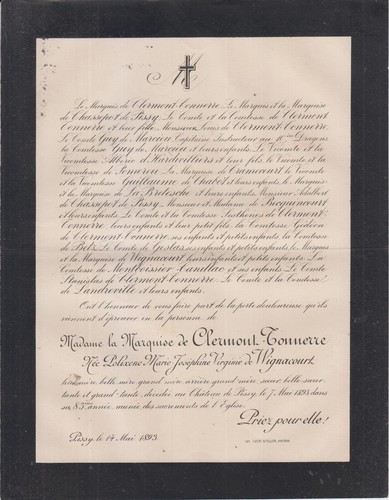 Le Marquis de Clermont-Tonnerre, Le Marquis et la Marquise
de Chassepot de Pissy, Le Comte et la Comtesse de Clermont
Tonnerre et leur fille, Monsieur Louis de Clermont-Tonnerre,
Le Comte Guy de Marcieu, Capitaine Instructeur au Dragons
la Comtesse Guy de Marcieu et leurs enfants, Le Vicomte et la
Vicomtesse d'Hardivilliers et leurs fils, le Vicomte et la
Vicomtesse de le Marquis de Cramecourt le Vicomte
et la Vicomtesse Guillaume de Chabot et leurs enfants, le Marquis
et la Marquise de La Bretesche et leurs enfants, Monsieur Adalbert
de Chassepot de Pissy, Monsieur et Madame de Becquincourt
et leurs enfants, Le Comte et la Comtesse Sosthènes de Clermont-
Tonnerre, leurs enfants et leur petit fils, la Comtesse Gédéon
de Clermont-Tonnerre, ses enfants et petits enfants, la Comtesse
de Betz, Le Comte de ses enfants et petits enfants, le Marquis
et la Marquise de Wignacourt leurs enfants et petits enfants, La
Comtesse de Montboissier-Canillac et ses enfants, Le Comte
Stanislas de Clermont-Tonnerre, Le Comte et la Comtesse
de Landreville et leurs enfants.
Ont l'honneur de vous faire part de la perte douloureuse qu'ils
viennent d'éprouver en la personne de
Madame la Marquise de Clermont-Tonnerre
Née Polixene Marie Joséphine Virginie de Wignacourt
leur mère, belle mère, grand'mère, arrière grand'mère, sœur, belle-sœur,
tante et grand'tante, décédée au Château de Pissy le 7 Mai 1893 dans
sa 83 année, munie des sacrements de l'Église.
Priez pour elle!
Pissy le 14 Mai 1893